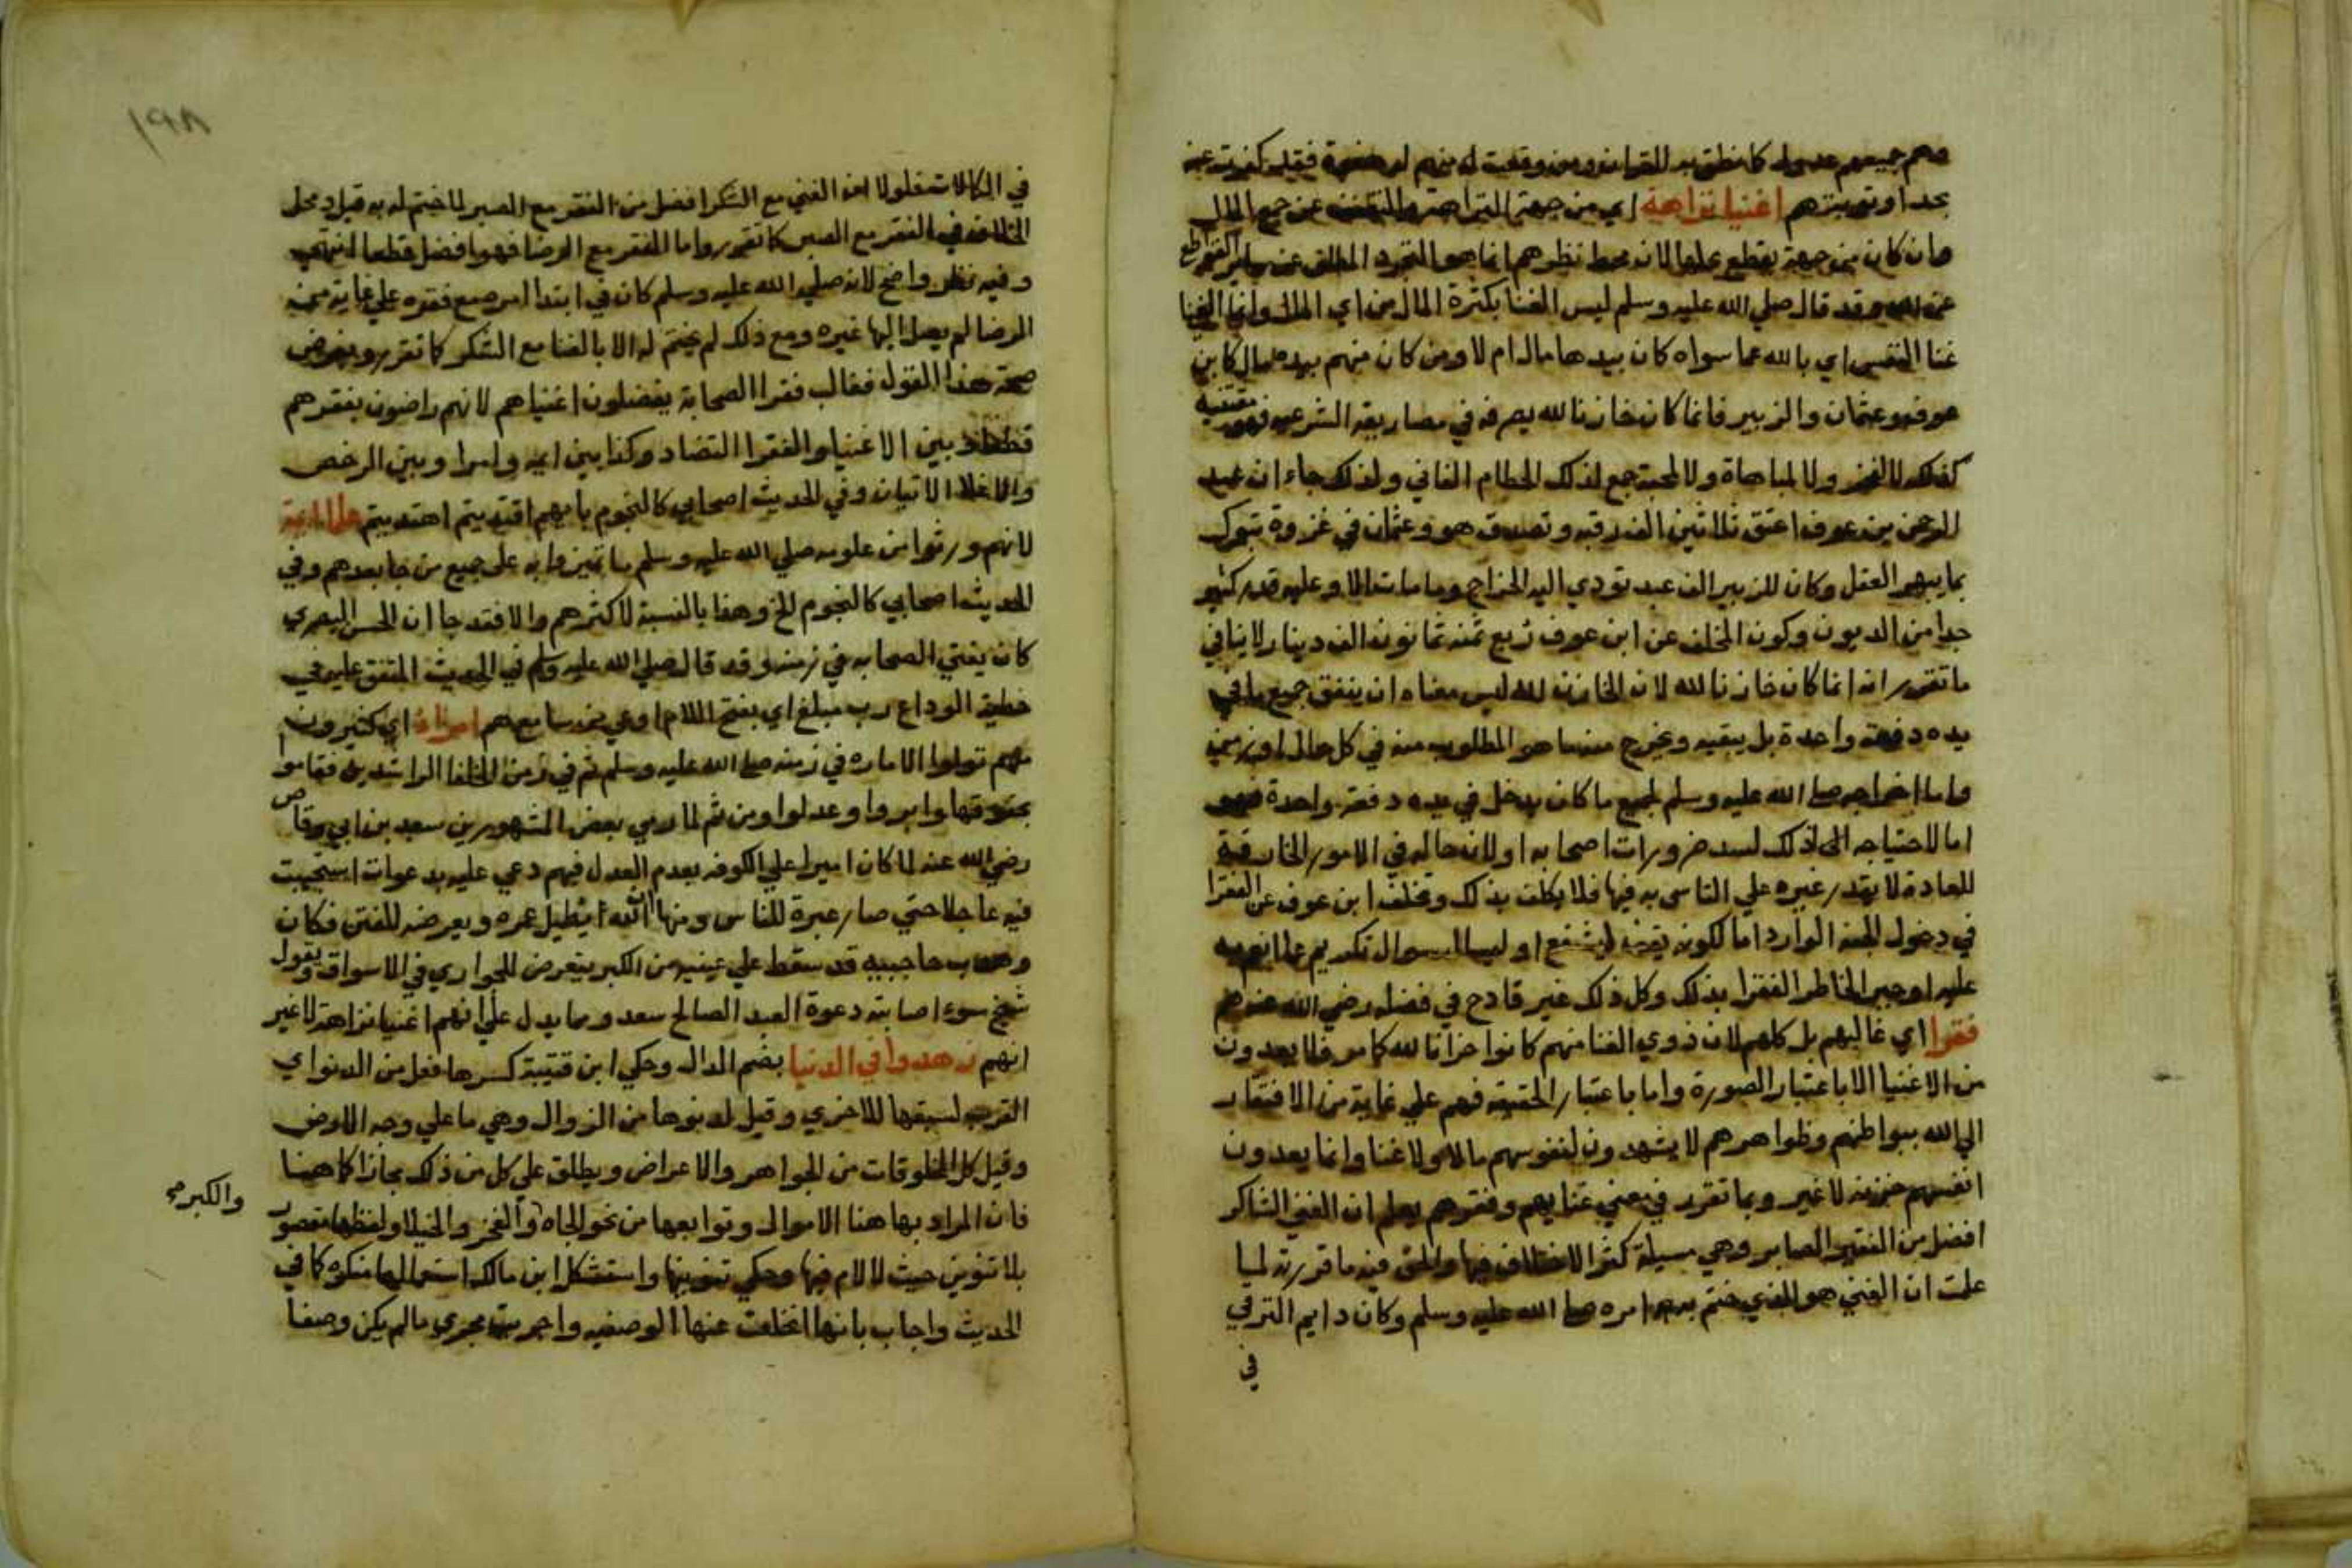 وهم جميعهم عدول كما نطق به القران ومن وقعت له منهم فقد كفرت عنه
بحد او توبة هم اغنيا نزاهة اي من جهة النزاهة عن جمع المال
وان كان من جهة يقطع بحلها لانه محط نظرهم انما هو التجرد المطلق عن القواطع
عن الله وقد قال صلي الله عليه وسلم ليس الغنا بكثرة المال من اي المال وانما الغنا
غنا النفس اي بالله عما سواه كان بيدها مال ام لا ومن كان منهم بيده مال كابن
عوف وعثمان والزبير فانما كان خازنا لله يصرفه في مصاريفه الشرعيه فهو يقتنيه
كذلك لا لفخر ولا لمباهاة ولا لمحبة جمع لذلك الحطام الفاني ولذلك جاء ان عبد
الرحمن بن عوف اعتق ثلاثين الف رقبه وتصدق هو وعثمان في غزوة تبوك
بما يبهر العقل وكان للزبير الف عبد تودي اليه الخراج وما مات الا وعليه قدر كثير
جدا من الديون وكون المخلف عن ابن عوف ربع ثمنه ثمانون الف دينار لا ينافي
ما تقرر انه انما كان خازنا لله لان الخازن لله ليس معناه ان ينفق جميع ما في
يده دفعة واحدة بل يبقيه ويخرج منه ما هو المطلوب منه في كل حال او زمن
واما اخراجه صلي الله عليه وسلم لجميع ما كان يدخل في يده دفعة واحدة فهو
اما لاحتياجه الى ذلك لسد ضرورات اصحابه او لان حاله في الامور الخارقة
للعادة لا يقدر غيره علي التاسي به فيها فلا يكلف بذلك وتخلف ابن عوف عن الفقرا
في دخول الجنة الوارد اما لكونه يقف ليشفع او ليسال سوال تكريم بما انعم به
عليه او جبر الخاطر الفقرا بذلك وكل ذلك غير قادح في فضله رضي الله عنه هم
فقرا اي غالبهم بل كلهم لان ذوي الغنا منهم كانوا خزانا لله كما مر فلا يعدون
من الاغنيا الا باعتبار الصورة واما باعتبار الحقيقه فهم علي غاية من الافتقار
الي الله ببواطنهم وظواهرهم لا يشهدون لنفوسهم مالا ولا غنا وانما يعدون
انفسهم خزنه لا غير وبما تقرر في معني غنايهم وفقرهم يعلم ان الغني الشاكر
افضل من الفقير الصابر وهي مسيلة كثر الاختلاف فيها والحق فيه ما قررته لما
علمت ان الغني هو الذي ختم به امره صلي الله عليه وسلم وكان دايم الترقي
في
١٩٨
في الكمالات فلولا ان الغني مع الشكر افضل من الفقر مع الصبر لما ختم له به قيل ومحل
الخلاف في الفقر مع الصبر كما تقرر واما الفقر مع الرضا فهو افضل قطعا انتهي
وفيه نظر واضح لانه صلي الله عليه وسلم كان في ابتدا امره مع فقره علي غاية من
الرضا لم يصل اليها غيره ومع ذلك لم يختم له الا بالغنا مع الشكر كما تقرر وبفرض
صحة هذا القول فغالب فقرا الصحابة يفضلون اغنياهم لانهم راضون بفقرهم
بين الاغنيا والفقرا التضاد وكذا بين ايمه وامرا وبين الرخص
والاغلا الاتيان وفي الحديث اصحابي كالنجوم بايهم اقتديتم اهتديتم
لانهم ورثوا من علومه صلي الله عليه وسلم ما تميزوا به علي جميع من جا بعدهم وفي
الحديث اصحابي كالنجوم الخ وهذا بالنسبة لاكثرهم والا فقد جا ان الحسن البصري
كان يفتي الصحابه في زمنه وقد قال صلي الله عليه وسلم في الحديث المتفق عليه في
خطبة الوداع رب مبلغ اي بفتح اللام اوعي من سامع هم امراء اي كثيرون
منهم تولوا الاماره في زمنه صلي الله عليه وسلم ثم في زمن الخلفا الراشدين فقاموا
بحقوقها وابروا وعدلوا ومن ثم لما رمي بعض المشهورين سعد بن ابي وقاص
رضي الله عنه لما كان اميرا علي الكوفه بعدم العدل فيهم دعي عليه بدعوات استجيبت
فيه عاجلا حتي صار عبرة للناس ومنها ان الله يطيل عمره ويعرضه للفتن فكان
حاجبيه قد سقط علي عينيه من الكبر يتعرض للجواري في الاسواق ويقول
شيخ سوء اصابته دعوة العبد الصالح سعد ومما يدل علي انهم اغنيا نزاهة لا غير
انهم زهدوا في الدنيا بضم الدال وحكي ابن قتيبة كسرها فعل من الدنو اي
القرب لسبقها للاخري وقيل لدنوها من الزوال وهي ما علي وجه الارض
وقيل كل المخلوقات من الجواهر والاعراض ويطلق علي كل من ذلك مجازا كما هنا
فان المراد بها هنا الاموال وتوابعها من نحو الجاه والفخر والخيلا ولفظها مقصور
والكبر صح
بلا تنوين حيث لا لام فيها وحكي تنوينها واستشكل ابن مالك استعمالها منكره كما في
الحديث واجاب بانها انخلعت عنها الوصفيه واجريت مجري ما لم يكن وصفا